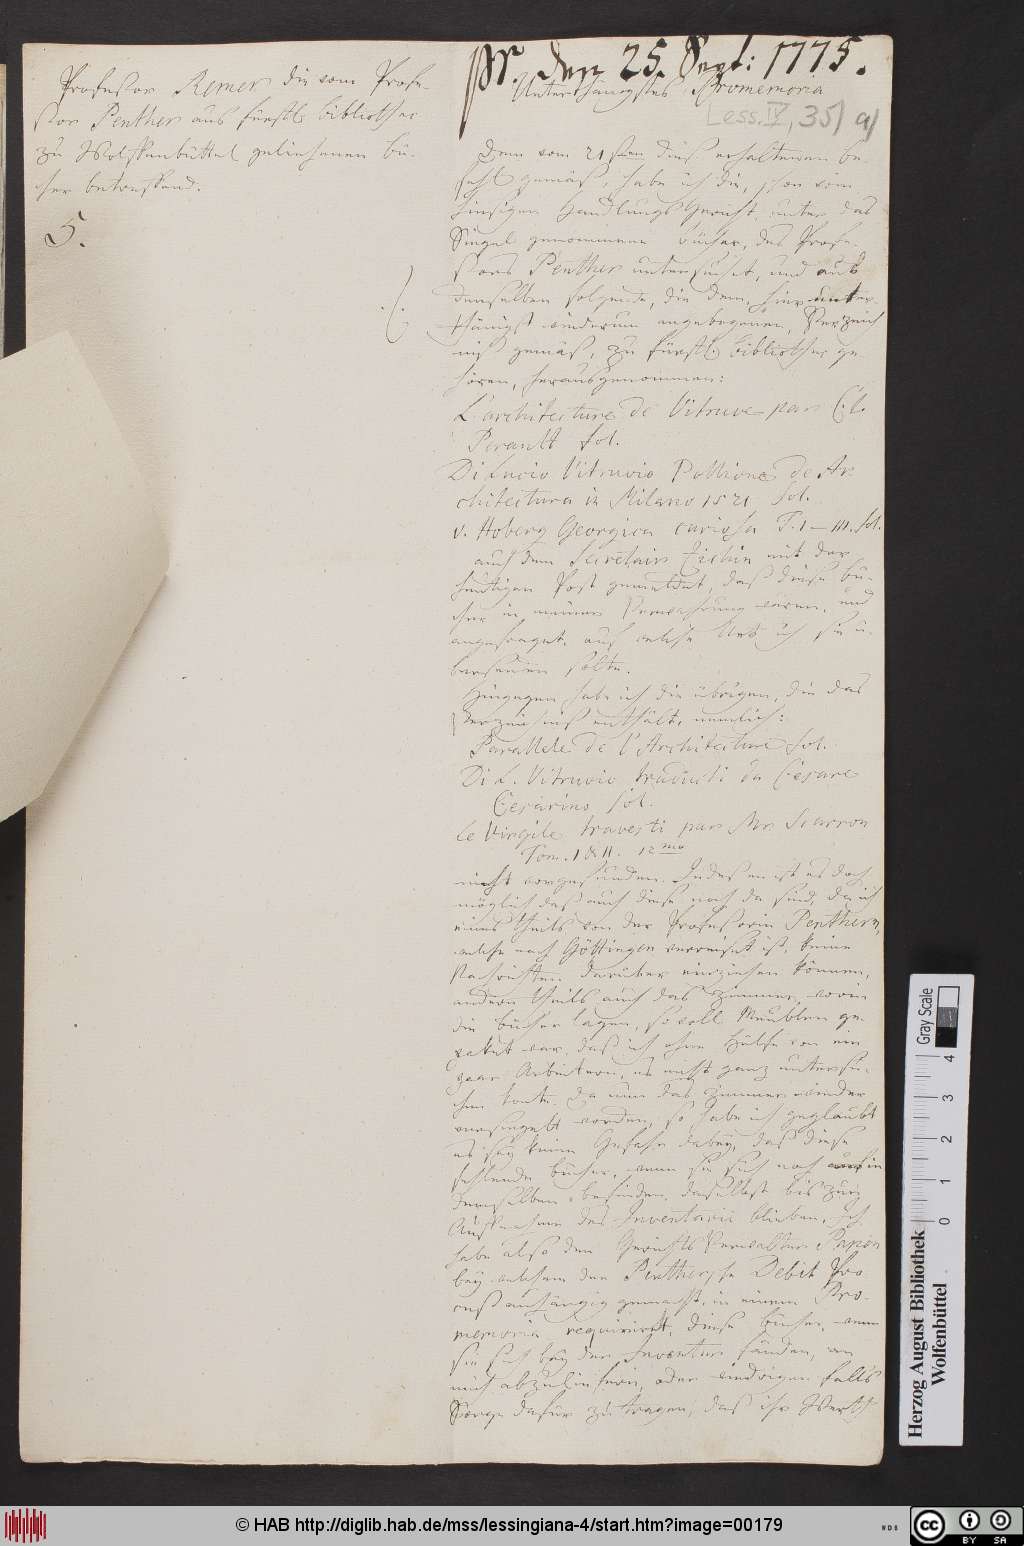 Professor Remer die vom Profe-
ssor Penther aus fürstl. bibliothec
zu Wolffenbüttel geliehenen Bü-
cher betreffend.
5.
pr. den 25. Sept: 1775.
Unterthänigstes Promemoria
Less. IV, 35) a)
Dem vom 21sten dieses erhaltenen be-
fehl gemäß, habe ich die, schon vom
hiesigen Handlungs Gericht unter das
Siegel genommene bücher, des Profe-
ssors Penther untersuchet, und aus
denselben folgende, die dem, hier unter-
thänigst wiederum angebogenen, Verzeich
niß gemäß, zu fürstl. bibliothec ge
hören, herausgenommen:
L'architecture de Vitruve par Cl.
Perault fol.
Di Lucio Vitruvio Pollione de Ar
chitectura in Milano 1521 fol.
v. Hoberg Georgica curiosa T. I–III. fol.
auch dem Secretair Cichin mit der
heutigen Post gemeldet, daß diese bü-
cher in meiner Verwahrung wären, und
angefraget, auf welche Art ich sie ü-
bersenden solte.
Hingegen habe ich die übrigen, die das
Verzeichniß enthält, nemlich:
Parallele de l'Architecture fol.
Di L. Vitruvio traducti da Cesare
Cesarino fol.
le Virgile travesti par Mr Scarron
Tom. I & II. 12mo
nicht vorgefunden. Indessen ist es doch
möglich daß auch diese noch da sind, da ich
eines theils von der Professorin Penthern,
welche nach Göttingen verreiset ist, keine
Nachrichten darüber einziehen können,
andern theils auch das Zimmer, worin
die bücher lagen, so voll Meublen ge
packet war, daß ich ohne Hülfe von ein
paar Arbeitern, es nicht ganz untersu-
chen konte. Da nun das Zimmer wieder
versiegelt worden, so habe ich geglaubt
es sey keine Gefahr dabey, daß diese
fehlende bücher, wenn sie sich noch in
demselben befinden, daselbst bis zur
Aufnahme des Inventarii blieben. Ich
habe also den Gerichts Verwalter
bey welchem der Penthersche Debit Pro
ceß anhängig gemacht, in einem Pro-
memoria requiriret, diese bücher, wenn
sie sich bey der Inventur fänden, an
mich abzuliefern, oder widrigen falls
Sorge dafür zu tragen, das ihr Werth
Herzog August Bibliothek
Wolfenbüttel
0 1 2 3 4
Gray Scale
© HAB http://diglib.hab.de/mss/lessingiana-4/start.htm?image=00179
cc BY SA